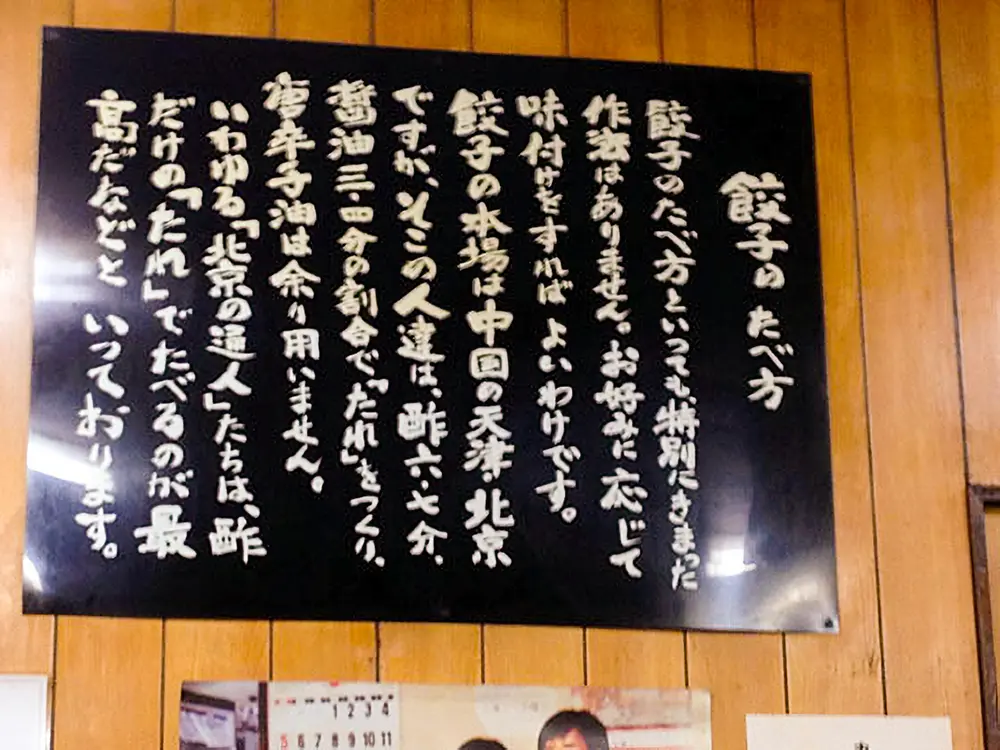 餃子のたべ方
餃子のたべ方といっても、特別にきまった
作法はありません。お好みに応じて
味付けをすればよいわけです。
餃子の本場は中国の天津・北京
ですが、そこの人達は、酢六・七分、
醤油三・四分の割合で「たれ」をつくり、
唐辛子油は余り用いません。
いわゆる「北京の通人」たちは、酢
だけの「たれ」でたべるのが最
高だなどと いっております。
1 2 3 4
5 6 7 8 9 10 11